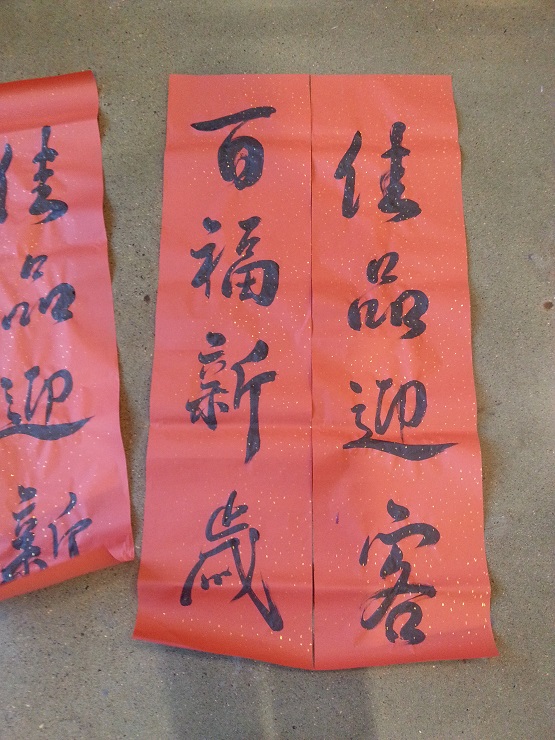 佳品迎客
百福新歲
佳品迎新